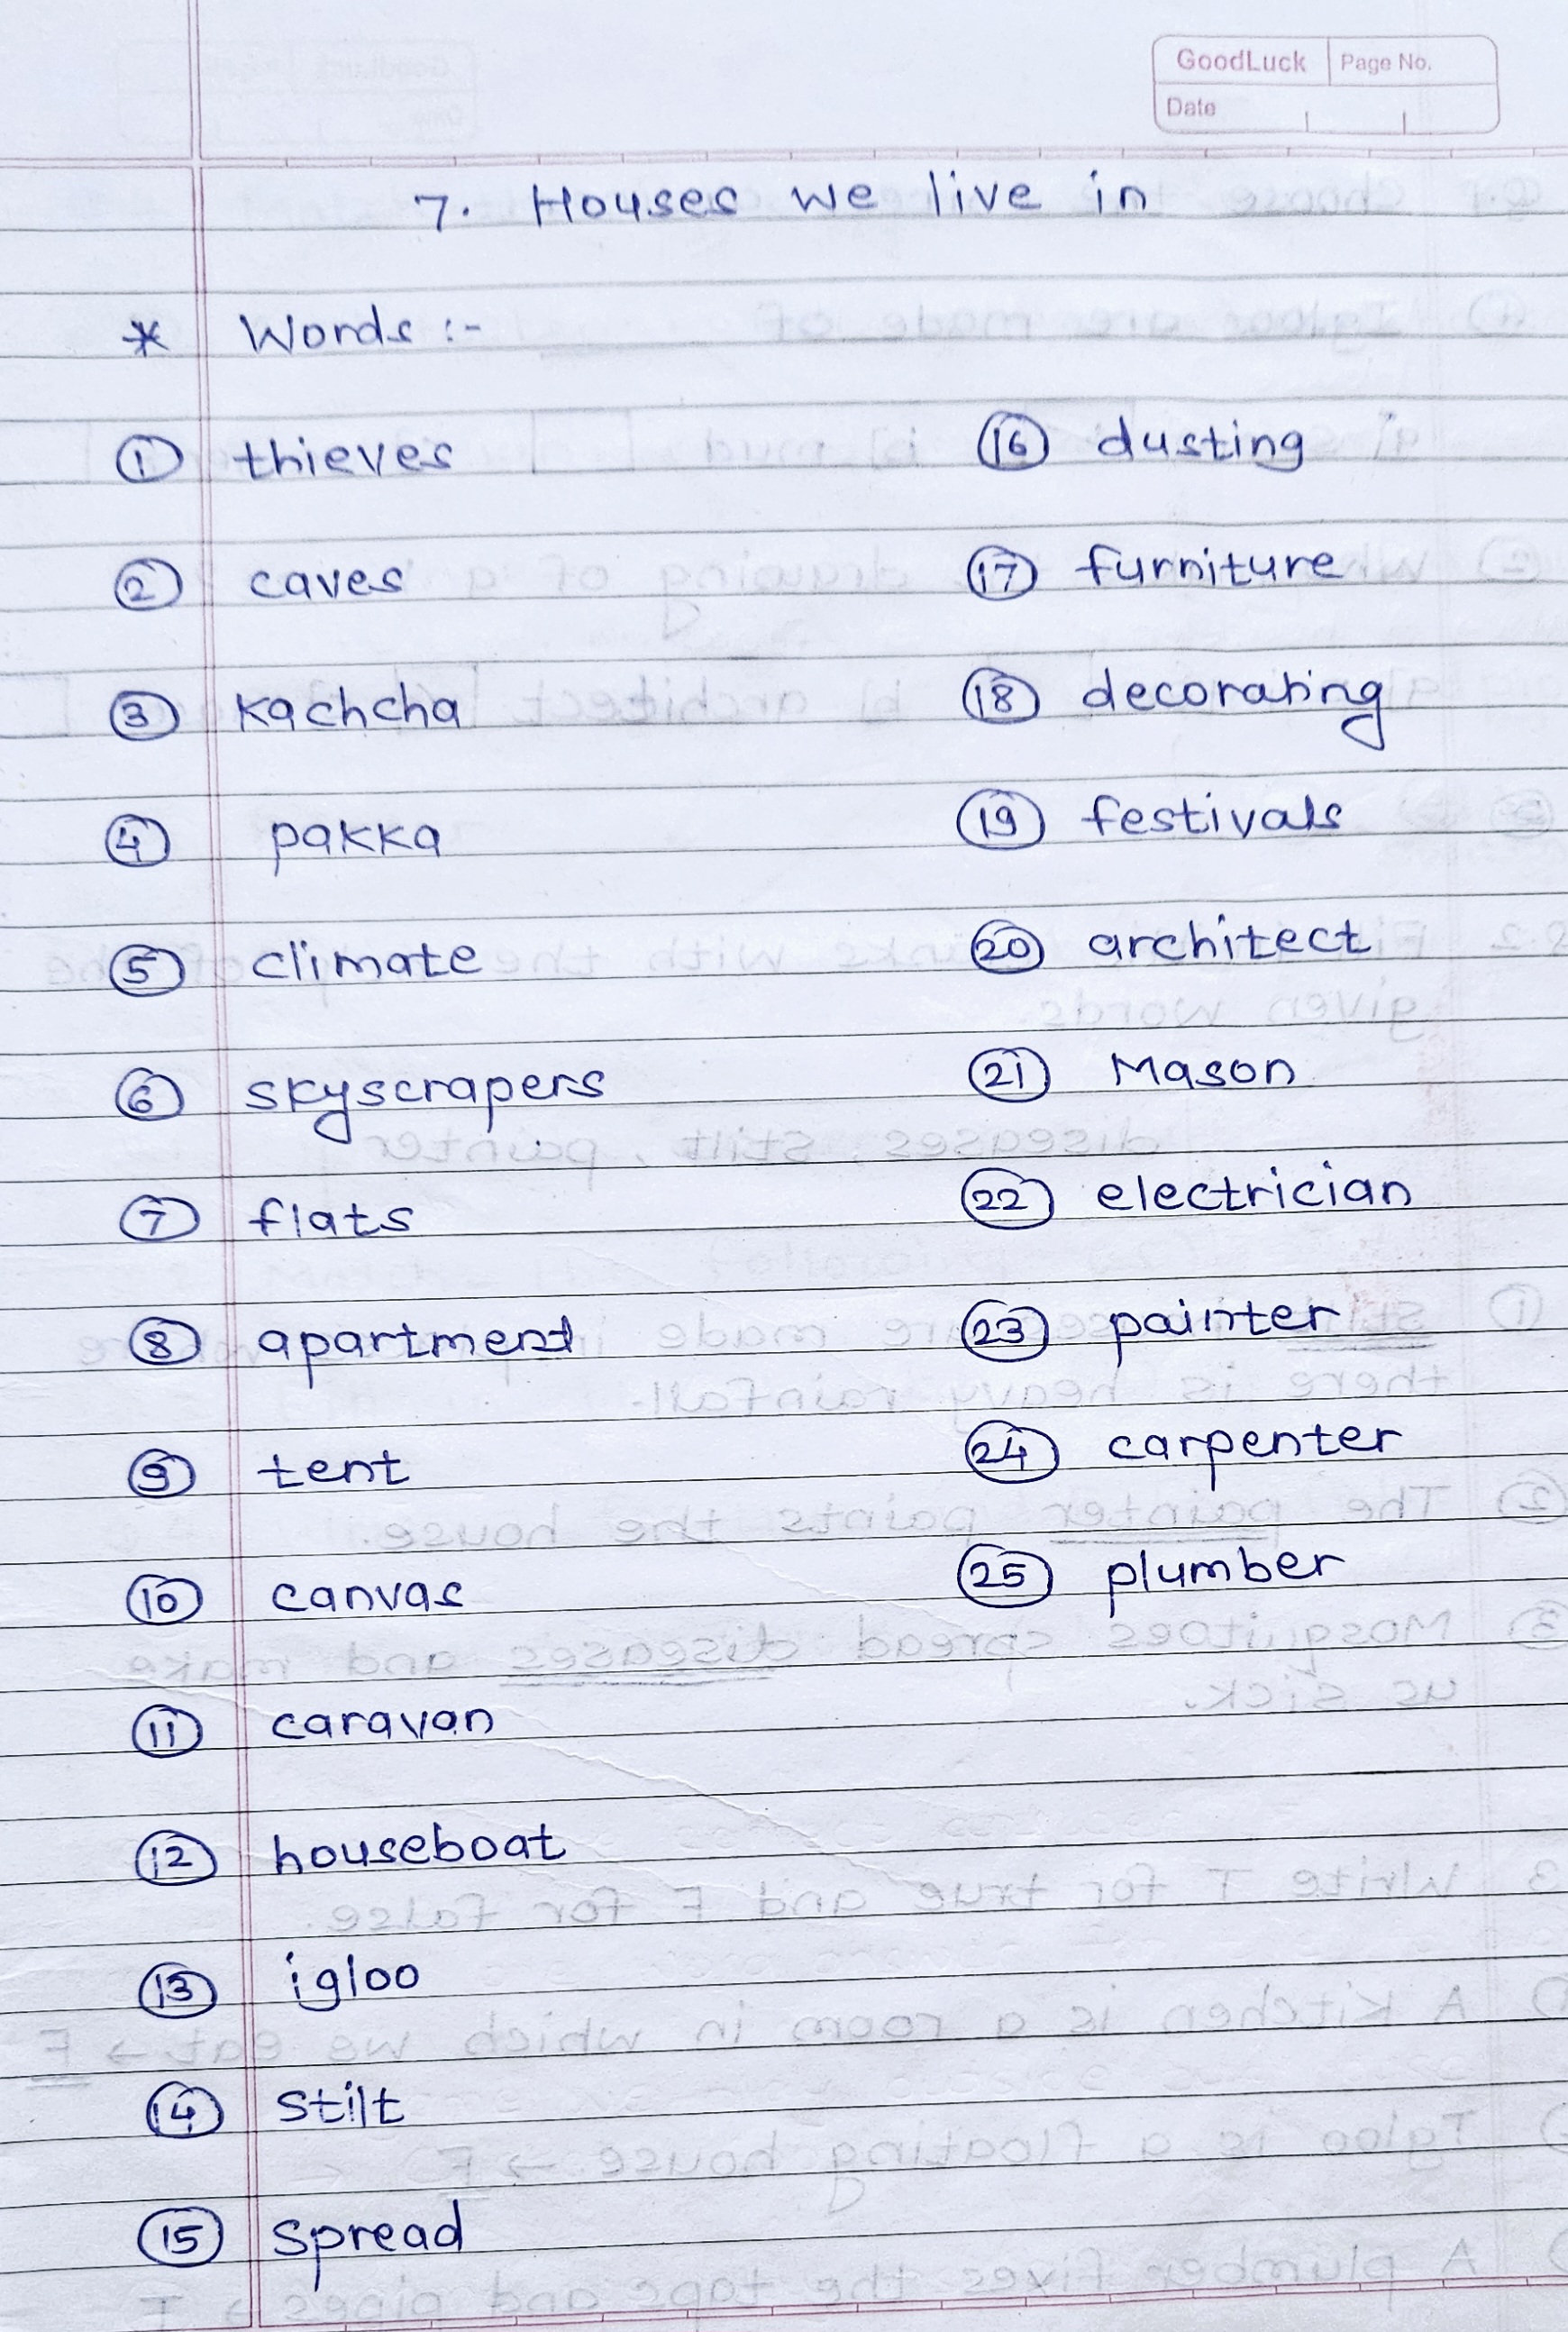 GoodLuck Page No.
Date
7. Houses we live in
* Words :-
① thieves
② caves
③ kachcha
④ pakka
⑤ climate
⑥ skyscrapers
⑦ flats
⑧ apartment
⑨ tent
⑩ canvas
⑪ caravan
⑫ houseboat
⑬ igloo
⑭ stilt
⑮ spread
⑯ dusting
⑰ furniture
⑱ decorating
⑲ festivals
⑳ architect
㉑ Mason
㉒ electrician
㉓ painter
㉔ carpenter
㉕ plumber